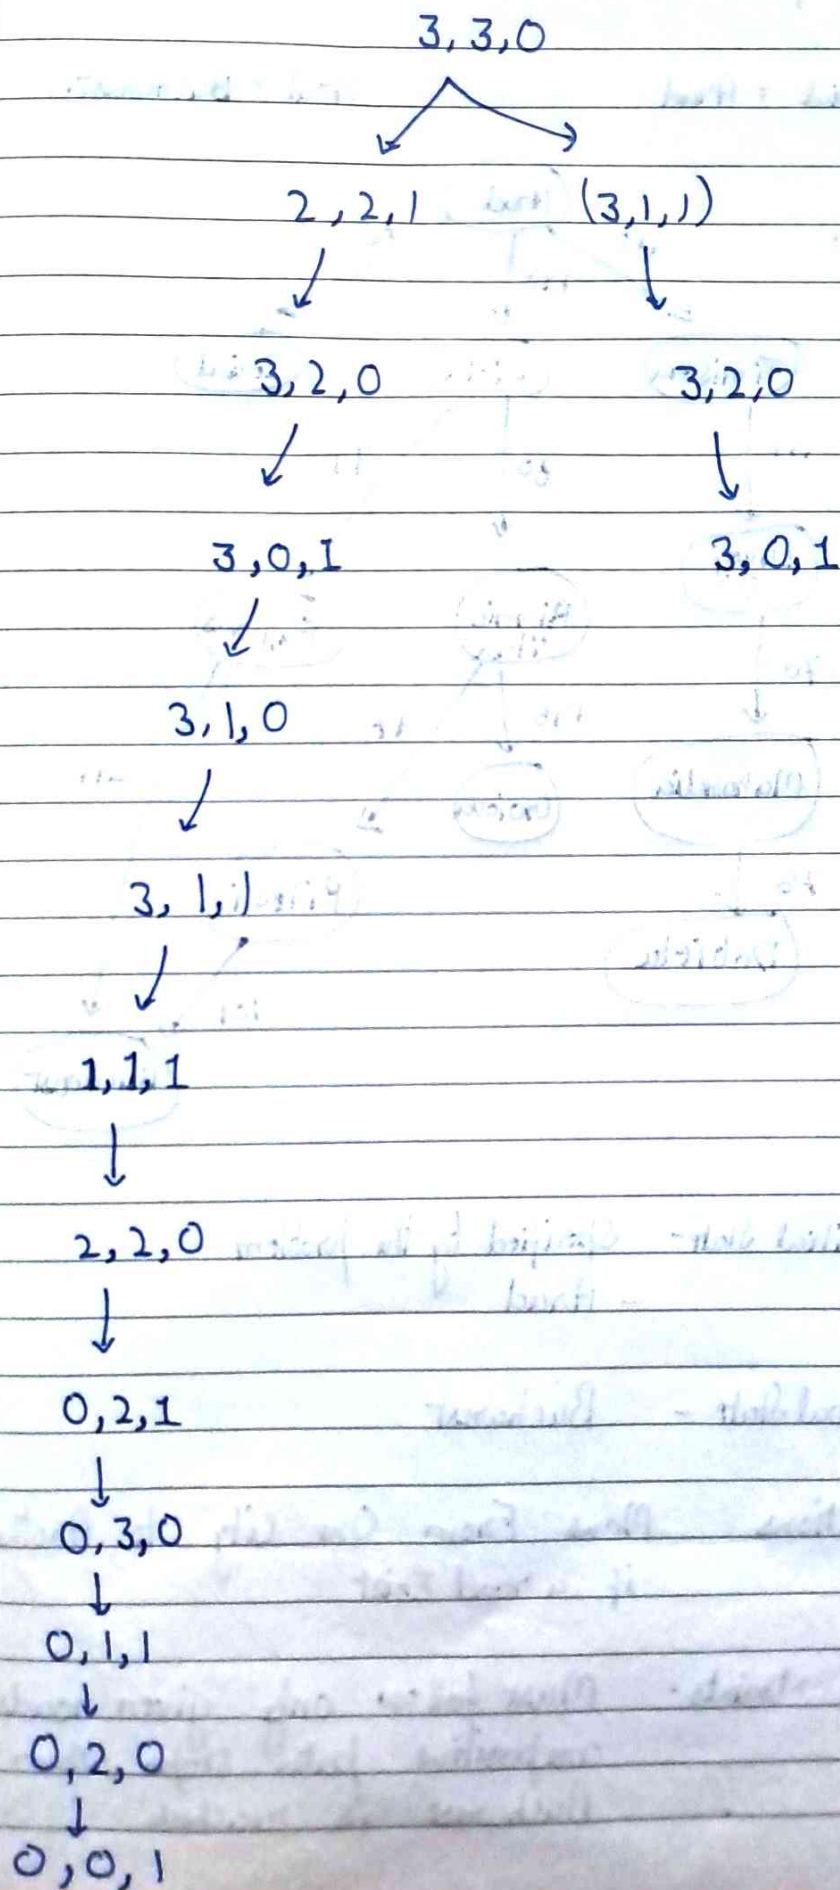 3,3,0
2,2,1 (3,1,1)
3,2,0 3,2,0
3,0,1 3,0,1
3,1,0
3,1,1
1,1,1
2,2,0
0,2,1
0,3,0
0,1,1
0,2,0
0,0,1